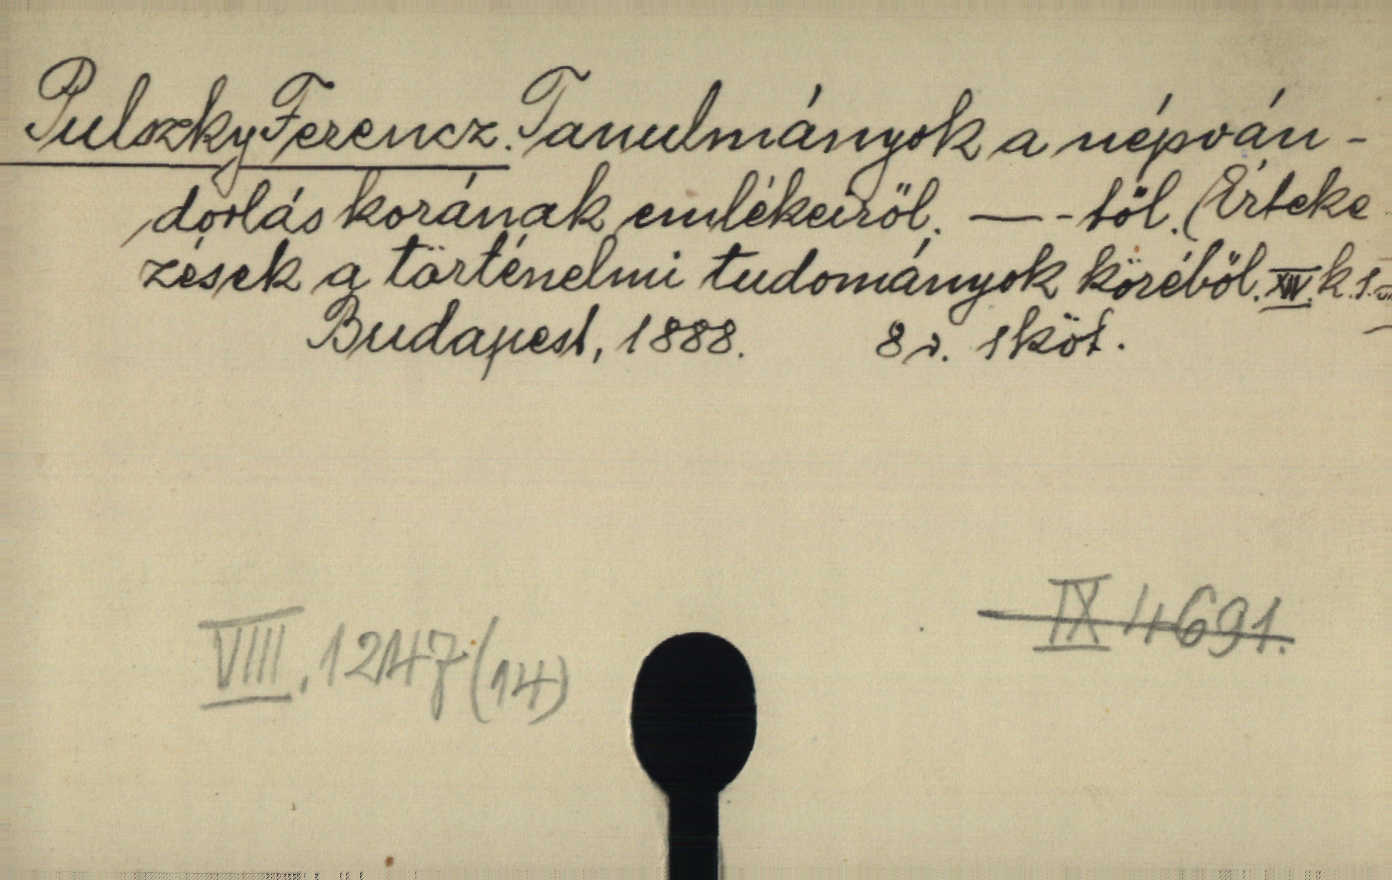 Pulszky Ferencz. Tanulmányok a népván-
dorlás korának emlékeiről. — -től. (Érteke
zések a történelmi tudományok köréből. XIV. k. 1.
Budapest, 1888. 8r. 1 köt.
IX 4691.
VIII. 1247 (14)